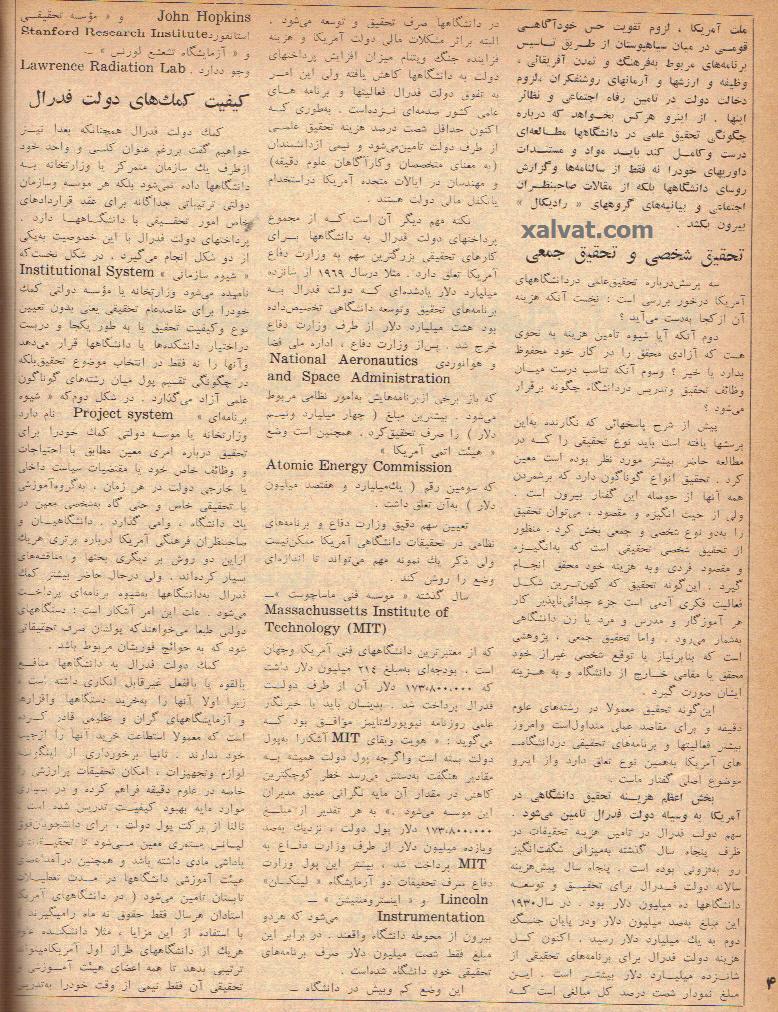 ملت آمریکا ، لزوم تقویت حس خودآگاهی
قومی در میان سیاهپوستان از طریق تاسیس
برنامه‌های مربوط به‌فرهنگ و تمدن آفریقائی ،
وظیفه و ارزشها و آرمانهای روشنفکران ،لزوم
دخالت دولت در تامین رفاه اجتماعی و نظائر
اینها . از اینرو هرکس بخواهد که درباره
چگونگی تحقیق علمی در دانشگاهها مطالعه‌ای
درست وکامل کند باید مواد و مستندات
داوریهای خودرا نه فقط از سالنامه‌ها وگزارش
روسای دانشگاهها بلکه از مقالات صاحبنظران
اجتماعی و بیانیه‌های گروههای « رادیکال »
بیرون بکشد .
xalvat.com
تحقیق شخصی و تحقیق جمعی
سه پرسش‌درباره تحقیق‌علمی دردانشگاههای
آمریکا درخور بررسی است : نخست آنکه هزینه
آن ازکجا به‌دست می‌آید ؟
دوم آنکه آیا شیوه تامین هزینه به نحوی
هست که آزادی محقق را در کار خود محفوظ
بدارد یا خیر ؟ وسوم آنکه تناسب درست میان
وظائف تحقیق وتدریس دردانشگاه چگونه برقرار
می‌شود ؟
پیش از شرح پاسخهائی که نگارنده به‌این
پرسشها یافته است باید نوع تحقیقی را که در
مطالعه حاضر بیشتر مورد نظر بوده است معین
کرد . تحقیق انواع گوناگون دارد که برشمردن
همه آنها از حوصله این گفتار بیرون است .
ولی از حیث انگیزه و مقصود ، می‌توان تحقیق
را به‌دو نوع شخصی و جمعی بخش کرد . منظور
از تحقیق شخصی تحقیقی است که به‌انگیزه
و مقصود فردی وبه هزینه خود محقق انجام
گیرد . این‌گونه تحقیق که کهن‌ترین شکل
فعالیت فکری آدمی است جزء جدائی‌ناپذیر کار
هر آموزگار و مدرس و مرد یا زن دانشگاهی
به‌شمار می‌رود . واما تحقیق جمعی ، پژوهشی
است که بنابرنیاز یا توقع شخصی غیراز خود
محقق یا مقامی خارج از دانشگاه و به هزینه
ایشان صورت گیرد .
این‌گونه تحقیق معمولا در رشته‌های علوم
دقیقه و برای مقاصد عملی متداول‌است وامروز
بیشتر فعالیتها و برنامه‌های تحقیقی دردانشگاه‌ـ
های آمریکا به‌همین نوع تعلق دارد واز اینرو
موضوع اصلی گفتار ماست .
بخش اعظم هزینه تحقیق دانشگاهی در
آمریکا به وسیله دولت فدرال تامین می‌شود .
سهم دولت فدرال در تامین هزینه تحقیقات در
ظرف پنجاه سال گذشته به‌میزانی شگفت‌انگیز
رو به‌فزونی بوده است . پنجاه سال پیش‌هزینه
سالانه دولت فدرال برای تحقیق و توسعه
دانشگاها ده میلیون دلار بود . در سال ۱۹۳۰
این مبلغ به‌صد میلیون دلار ودر پایان جنگ
دوم به یك میلیارد دلار رسید . اکنون کل
هزینه دولت فدرال برای برنامه‌های تحقیقی از
شانزده میلیارد دلار بیشتر است . این
مبلغ نمودار شصت درصد کل مبالغی است که
در دانشگاهها صرف تحقیق و توسعه می‌شود .
البته براثر مشکلات مالی دولت آمریکا و هزینه
فزاینده جنگ ویتنام میزان افزایش پرداختهای
دولت به دانشگاهها کاهش یافته ولی این امر
به تفوق دولت فدرال فعالیتها و برنامه های
علمی کشور صدمه‌ای نزده‌است . به‌طوری که
اکنون حداقل شصت درصد هزینه تحقیق علمی
از طرف دولت تامین‌می‌شود و نیمی ازدانشمندان
(به معنای متخصصان وکارآگاهان علوم دقیقه)
و مهندسان در ایالات متحده آمریکا دراستخدام
یاکنترل مالی دولت هستند .
نکته مهم دیگر آن است که از مجموع
پرداختهای دولت فدرال به دانشگاهها برای
کارهای تحقیقی بزرگترین سهم به وزارت دفاع
آمریکا تعلق دارد . مثلا درسال ۱۹۶۹ از شانزده
میلیارد دلار یادشده‌ای که دولت فدرال به
برنامه‌های تحقیق وتوسعه دانشگاهی تخصیص‌داده
بود هشت میلیارد دلار از طرف وزارت دفاع
خرج شد . پس‌از وزارت دفاع ، اداره ملی فضا
و هوانوردی National Aeronautics
and Space Administration
که باز برخی ازبرنامه‌هایش به‌امور نظامی مربوط
می‌شود . بیشترین مبلغ ( چهار میلیارد ونیم
دلار ) را صرف تحقیق‌کرد . همچنین است وضع
« هیئت اتمی آمریکا »
Atomic Energy Commission
که سومین رقم ( یك‌میلیارد و هفتصد میلیون
دلار ) به‌آن تعلق داشت .
تعیین سهم دقیق وزارت دفاع و برنامه‌های
نظامی در تحقیقات دانشگاهی آمریکا ممکن‌نیست
ولی ذکر یك نمونه مهم می‌تواند تا اندازه‌ای
وضع را روشن کند .
سال گذشته « موسسه فنی ماساچوست »ـ
Massachussetts Institute of
Technology (MIT)
که از معتبرترین دانشگاههای فنی آمریکا وجهان
است . بودجه‌ای به‌مبلغ ۲۱۴ میلیون دلار داشت
که ۱۷۳٫۸۰۰٫۰۰۰ دلار آن از طرف دولت
فدرال پرداخت شد . بدینسان باید با خبرنگار
علمی روزنامه نیویورك‌تایمز موافق بود که
می‌گوید : « هویت وبقای MIT آشکارا به‌پول
دولت بسته است واگرچه پول دولت همیشه به
مقادیر هنگفت به‌دستش می‌رسد خطر کوچکترین
کاهش در مقدار آن مایه نگرانی عمیق مدیران
این موسسه می‌شود .» به هر تقدیر از مبلغ
۱۷۳٫۸۰۰٫۰۰۰ دلار پول دولت ، نزدیك به‌صد
ویازده میلیون دلار از طرف وزارت دفاع به
MIT پرداخت شد ، بیشتر این پول وزارت
دفاع صرف تحقیقات دو آزمایشگاه « لینکلن»
Lincoln و « اینسترومنتیشن » ـ
Instrumentation می‌شود که هردو
بیرون از محوطه دانشگاه واقعند . در برابر این
مبلغ فقط شصت میلیون دلار صرف برنامه‌های
تحقیقی خود دانشگاه شده‌است .
این وضع کم وبیش در دانشگاه ـ
John Hopkins و « مؤسسه تحقیقی
استانفورد Stanford Research Institute
و « آزمایشگاه تشعشع لورنس » ـ
Lawrence Radiation Lab . وجود دارد
کیفیت کمك‌های دولت فدرال
کمك دولت فدرال همچنانکه بعدا نیز
خواهیم گفت بررغم عنوان کلی و واحد خود
ازطرف یك سازمان متمرکز یا وزارتخانه به
دانشگاهها داده نمی‌شود بلکه هر موسسه وسازمان
دولتی ترتیباتی جداگانه برای عقد قراردادهای
خاص امور تحقیقی با دانشگاهها دارد .
پرداختهای دولت فدرال با این خصوصیت به‌یکی
از دو شکل انجام می‌گیرد . در شکل نخست‌که
« شیوه سازمانی » Institutional System
نامیده می‌شود وزارتخانه یا مؤسسه دولتی کمك
خودرا برای مقاصدعام تحقیقی یعنی بدون تعیین
نوع وکیفیت تحقیق یا به طور یکجا و دربست
دراختیار دانشکده‌ها یا دانشگاهها قرار می‌دهد
وآنها را نه فقط در انتخاب موضوع تحقیق‌بلکه
در چگونگی تقسیم پول میان رشته‌های گوناگون
علمی آزاد می‌گذارد . در شکل دوم‌که « شیوه
برنامه‌ای » Project system نام دارد
وزارتخانه یا موسسه دولتی کمك خودرا برای
تحقیق درباره امری معین مطابق با احتیاجات
و وظائف خاص خود یا مقتضیات سیاست داخلی
یا خارجی دولت در هر زمان . به‌گروه‌آموزشی
یا تحقیقی خاص و حتی گاه به‌شخصی معین در
یك دانشگاه ، وامی گذارد . دانشگاهیان و
صاحبنظران فرهنگی آمریکا درباره برتری هریك
ازاین دو روش بر دیگری بحثها و مناقشه‌های
بسیار کرده‌اند . ولی درحال حاضر بیشتر کمك
فدرال به‌دانشگاهها به‌شیوه برنامه‌ای پرداخت
می‌شود . علت این امر آشکار است : دستگاههای
دولتی طبعا می‌خواهندکه پولشان صرف تحقیقاتی
شود که به حوائج فوریشان مربوط باشد .
کمك دولت فدرال به دانشگاهها منافع
بالقوه یا بالفعل غیرقابل انکاری داشته است .
زیرا اولا آنها را به‌خرید دستگاهها وافزارها
و آزمایشگاههای گران و عظیمی قادر کرده
است که معمولا استطاعت خرید آنها را ازجیب
خود ندارند . ثانیا برخورداری از اینگونه
لوازم وتجهیزات ، امکان تحقیقات پرارزش را
خاصه در علوم دقیقه فراهم کرده و در بسیاری
موارد مایه بهبود کیفیت تدریس شده است .
ثالثا از برکت پول دولت ، برای دانشجویان‌فوق
لیسانس مستمری معین می‌شود تا تحقیقاتشان
پاداشی مادی داشته باشد و همچنین درآمداعضای
هیئت آموزشی دانشگاهها در مدت تعطیلات
تابستان تامین می‌شود ( در دانشگاههای آمریکا
استادان هرسال فقط حقوق نه ماه رامیگیرند )
با استفاده از این مزایا ، مثلا دانشکده علوم
هریك از دانشگاههای طراز اول آمریکامیتواند
ترتیبی بدهد تا همه اعضای هیئت آموزشی و
تحقیقی آن فقط نیمی از وقت خودرا به‌تدریس
۴